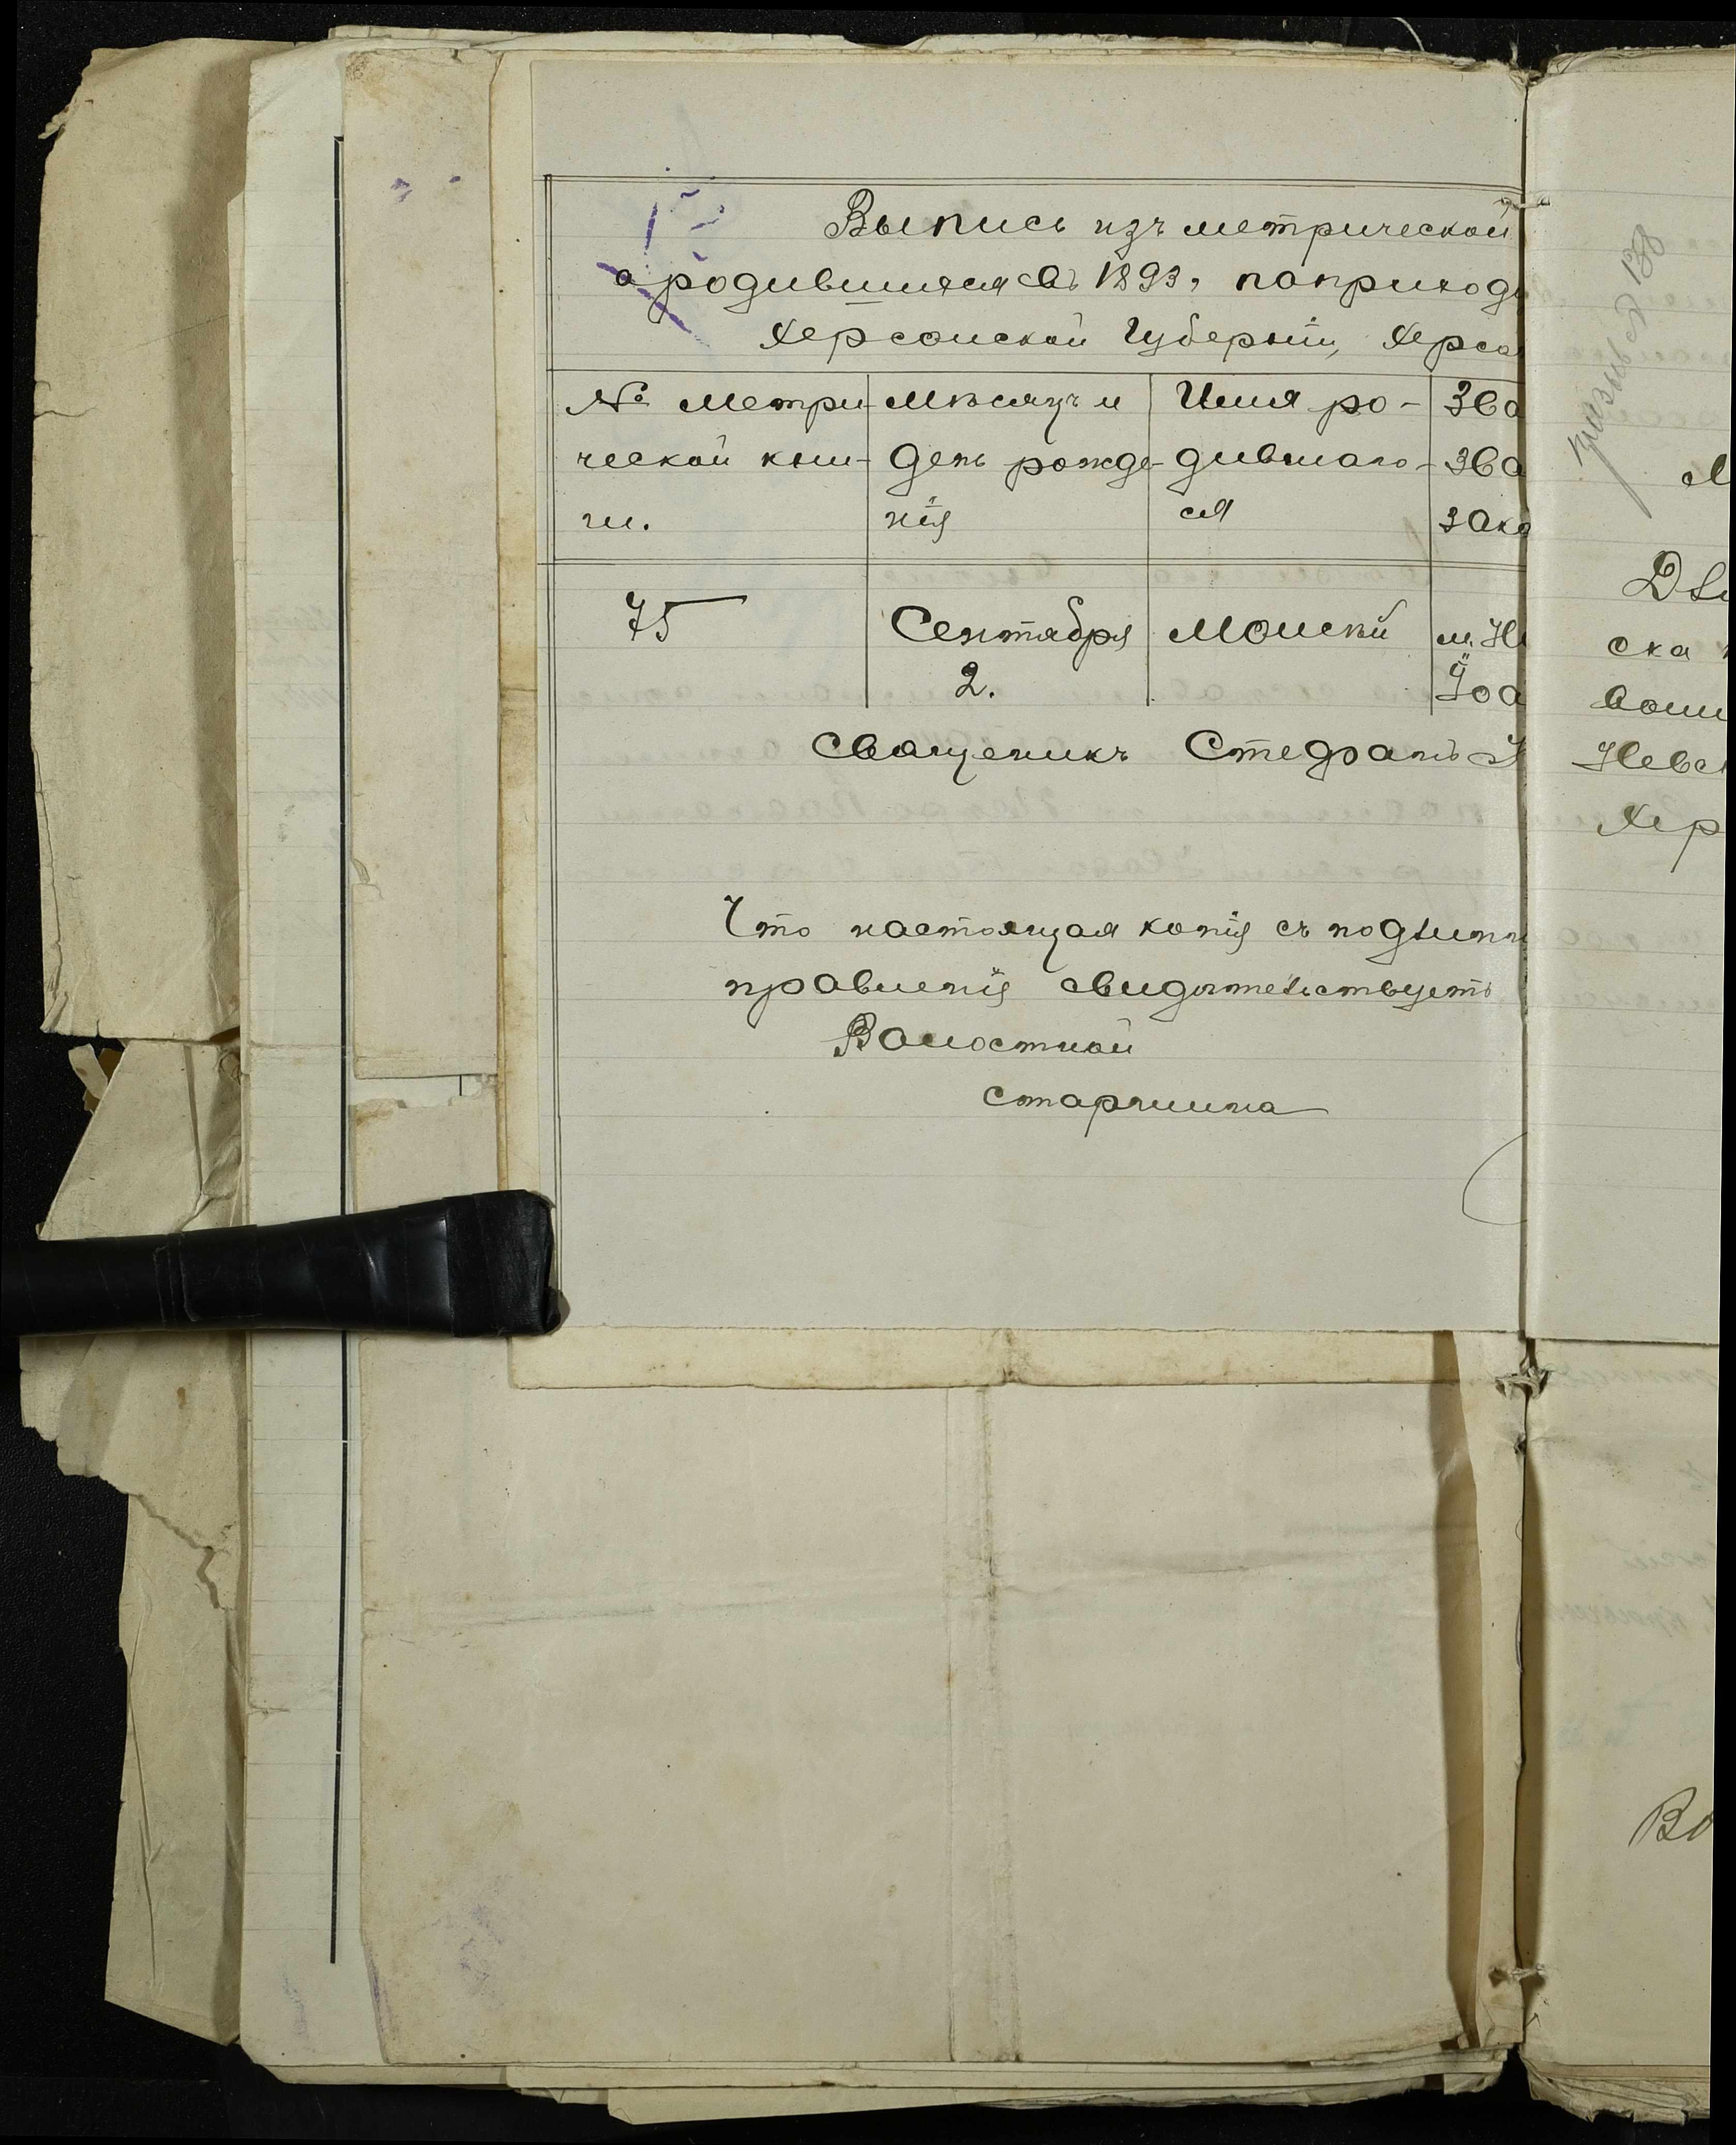 Выпись изъ метрической
о родившихся въ 1893 г. по приход
Херсонской Губерніи, Херсо
№ метри-
ческой кни-
ги.
Мѣсяцъ и
день рожде-
нія
Имя ро-
дившаго-
ся
Зва
зва
зако
75
Сентября
2.
Моисей
м. Не
Іоа
Священикъ Стефанъ
Что настоящая копія съ подлин
правленія свидѣтельствуетъ
Волостной
старшина
138
ска
Невс
Хер
Во